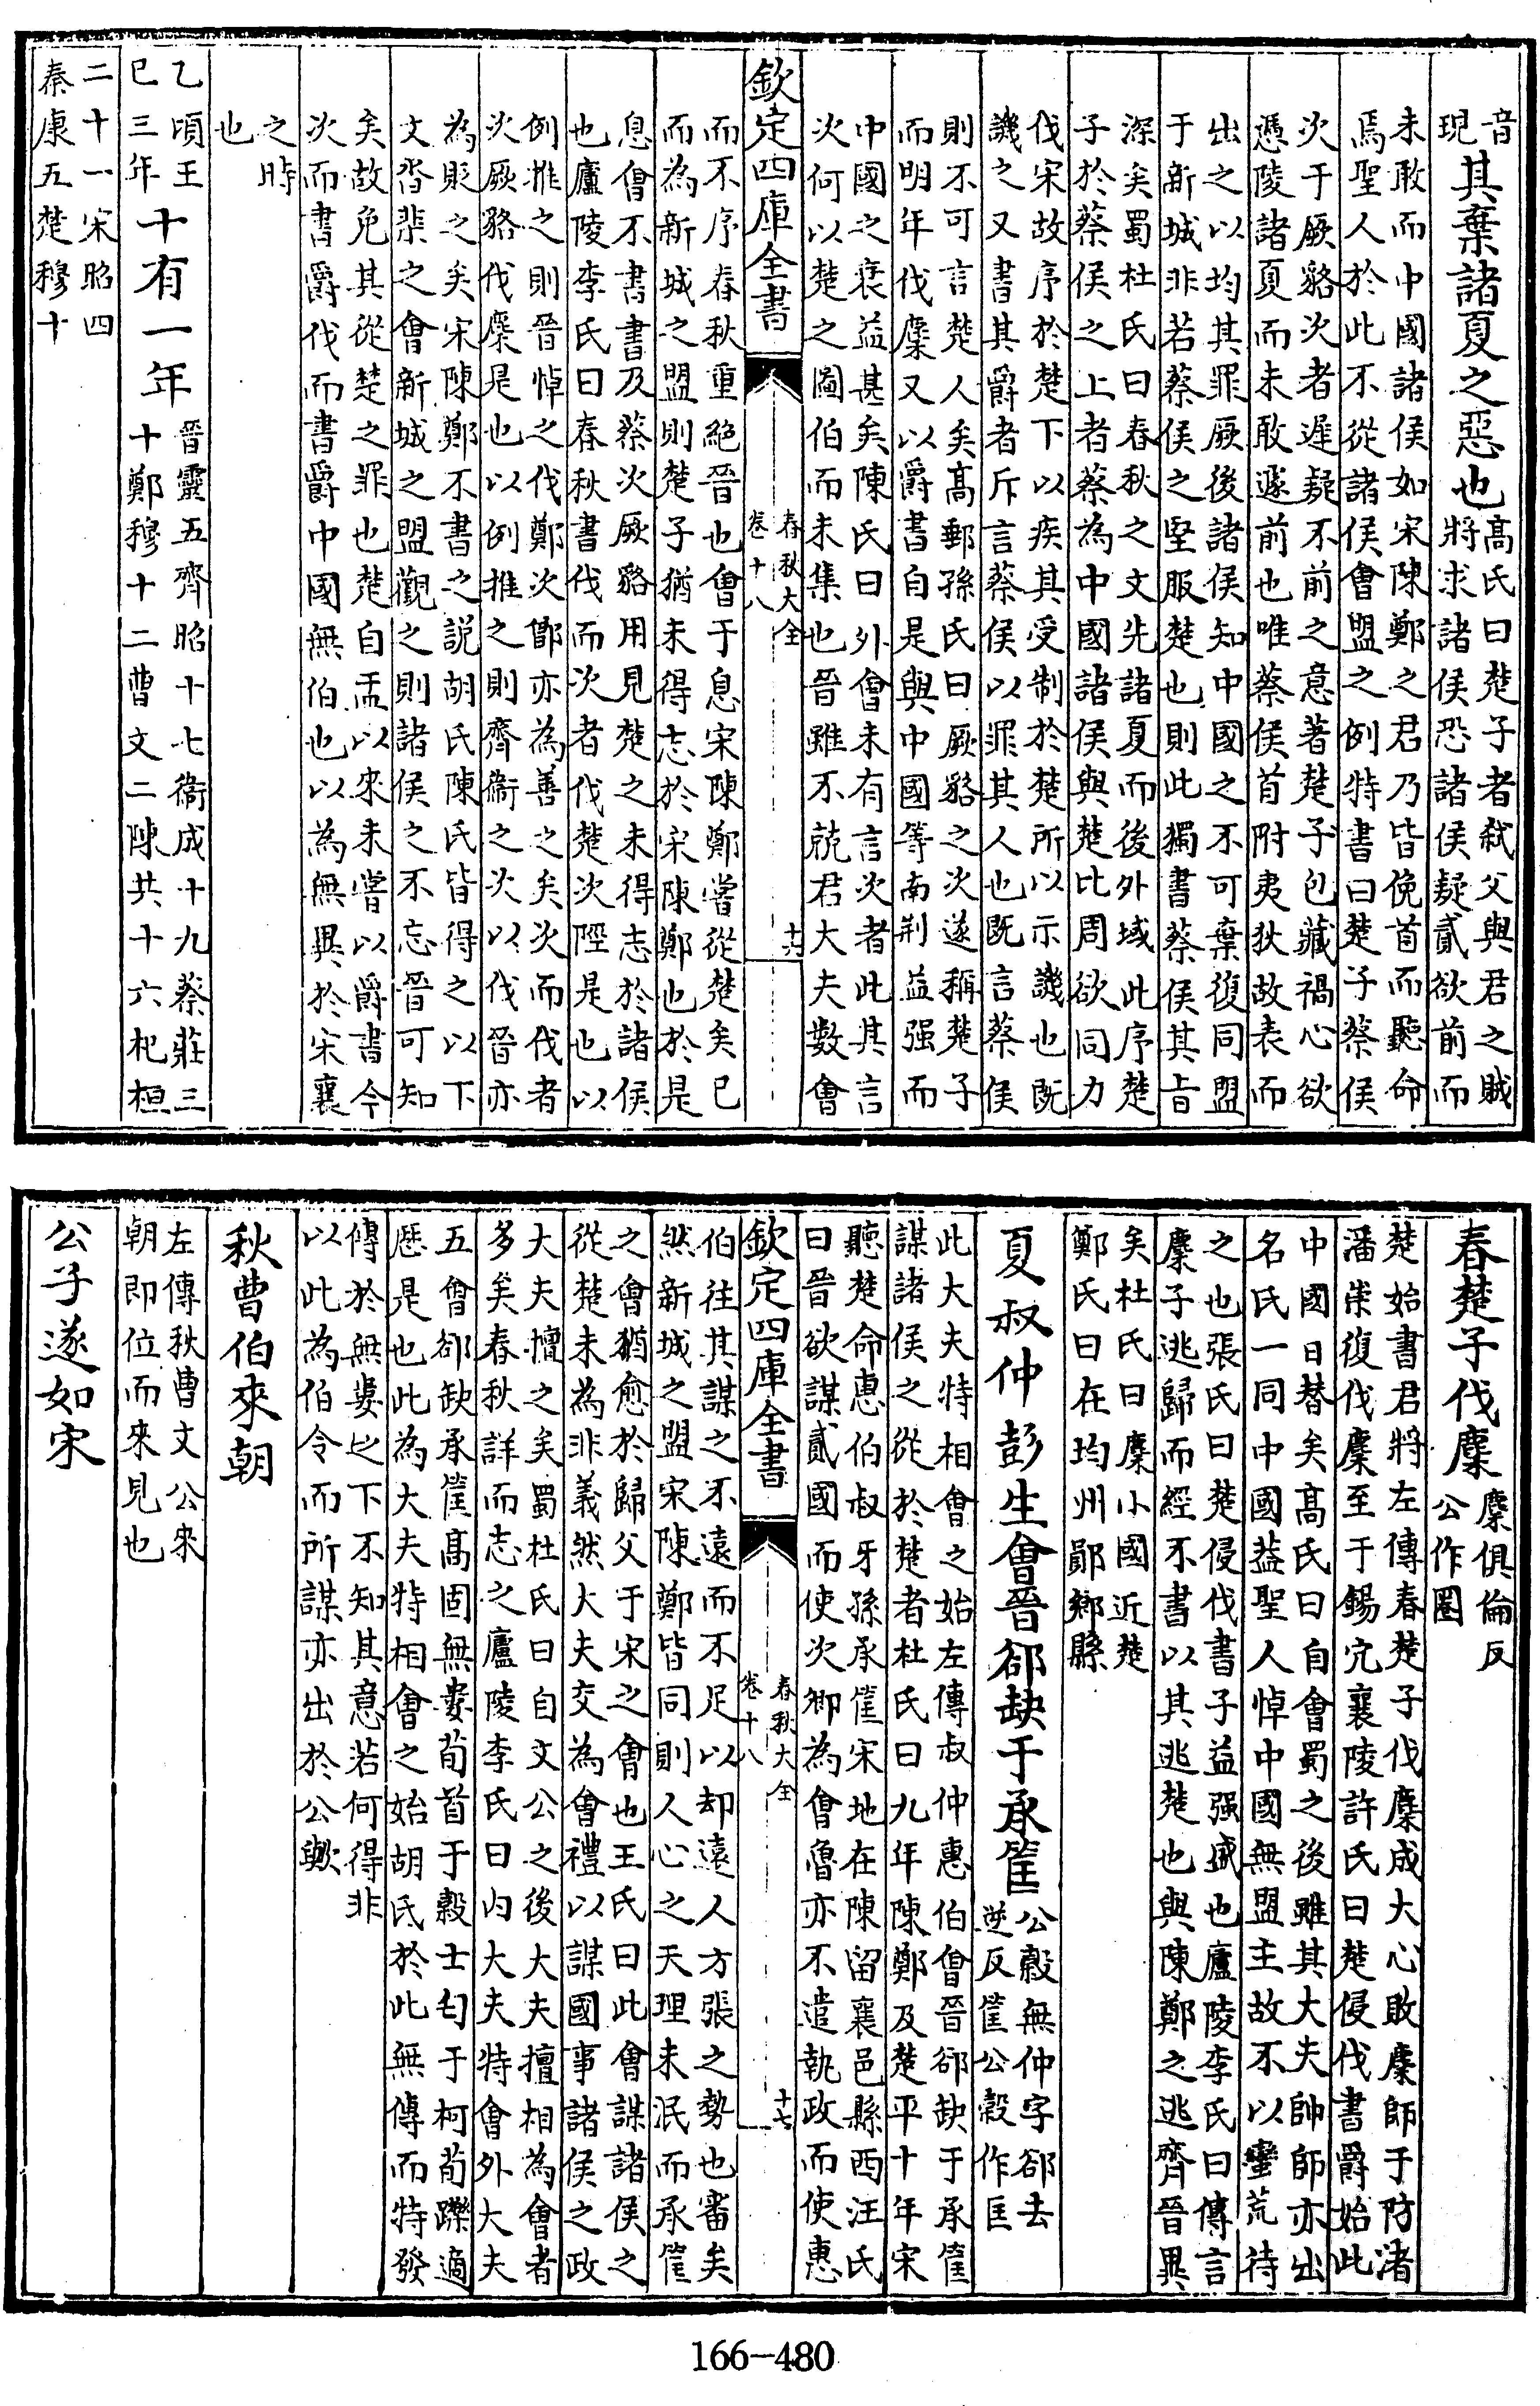 音現其棄諸夏之惡也高氏曰楚子者弑父與君之賊
將求諸侯恐諸侯疑貳欲前而
未敢而中國諸侯如宋陳鄭之君乃皆俛首而聽命
焉聖人於此不從諸侯會盟之例特書曰楚子蔡侯
次于厥貉次者遲疑不前之意著楚子包藏禍心欲
憑陵諸夏而未敢遂前也唯蔡侯首附夷狄故表而
出之以均其罪厥後諸侯知中國之不可棄復同盟
于新城非若蔡侯之堅服楚也則此獨書蔡侯其㫖
深矣蜀杜氏曰春秋之文先諸夏而後外域此序楚
子於蔡侯之上者蔡為中國諸侯與楚比周欲同力
伐宋故序於楚下以疾其受制於楚所以示譏也既
譏之又書其爵者斥言蔡侯以罪其人也既言蔡侯
則不可言楚人矣高郵孫氏曰厥貉之次遂稱楚子
而明年伐麇又以爵書自是與中國等南荆益强而
中國之衰益甚矣陳氏曰外會未有言次者此其言
次何以楚之圖伯而未集也晉雖不競君大夫數會
欽定四庫全書
春秋大全
卷十八
十六
而不序春秋重絶晉也會于息宋陳鄭嘗從楚矣已
而為新城之盟則楚子猶未得志於宋陳鄭也於是
息會不書書及蔡次厥貉用見楚之未得志於諸侯
也廬陵李氏曰春秋書伐而次者伐楚次陘是也以
例推之則晉悼之伐鄭次鄫亦為善之矣次而伐者
次厥貉伐麇是也以例推之則齊衞之次以伐晉亦
為貶之矣宋陳鄭不書之説胡氏陳氏皆得之以下
文沓棐之會新城之盟觀之則諸侯之不忘晉可知
矣故免其從楚之罪也楚自盂以來未嘗以爵書今
次而書爵伐而書爵中國無伯也以為無異於宋襄
之時
也
乙巳頃王三年十有一年晉靈五齊昭十七衞成十九蔡莊三
十鄭穆十二曹文二陳共十六杞桓
二十一宋昭四
秦康五楚穆十
春楚子伐麇麇俱倫反
公作圈
楚始書君將左傳春楚子伐麇成大心敗麇師于防渚
潘崇復伐麇至于錫穴襄陵許氏曰楚侵伐書爵始此
中國日替矣高氏曰自會蜀之後雖其大夫帥師亦出
名氏一同中國葢聖人悼中國無盟主故不以蠻荒待
之也張氏曰楚侵伐書子益强盛也廬陵李氏曰傳言
麇子逃歸而經不書以其逃楚也與陳鄭之逃齊晉異
矣杜氏曰麇小國近楚
鄭氏曰在均州鄖鄉縣
夏叔仲彭生會晉郤缺于承筐公榖無仲字郤去
逆反筐公榖作匡
此大夫特相會之始左傳叔仲惠伯會晉郤缺于承筐
謀諸侯之從於楚者杜氏曰九年陳鄭及楚平十年宋
聽楚命惠伯叔牙孫承筐宋地在陳留襄邑縣西汪氏
曰晉欲謀貳國而使次卿為會魯亦不遣執政而使惠
欽定四庫全書
春秋大全
卷十八
十七
伯往其謀之不遠而不足以却遠人方張之勢也審矣
然新城之盟宋陳鄭皆同則人心之天理未泯而承筐
之會猶愈於歸父于宋之會也王氏曰此會謀諸侯之
從楚未為非義然大夫交為會禮以謀國事諸侯之政
大夫擅之矣蜀杜氏曰自文公之後大夫擅相為會者
多矣春秋詳而志之廬陵李氏曰内大夫特會外大夫
五會郤缺承筐高固無婁荀首于榖士匄于柯荀躒適
歴是也此為大夫特相會之始胡氏於此無傳而特發
傳於無婁之下不知其意若何得非
以此為伯令而所謀亦出於公歟
秋曹伯來朝
左傳秋曹文公來
朝即位而來見也
公子遂如宋
166-480